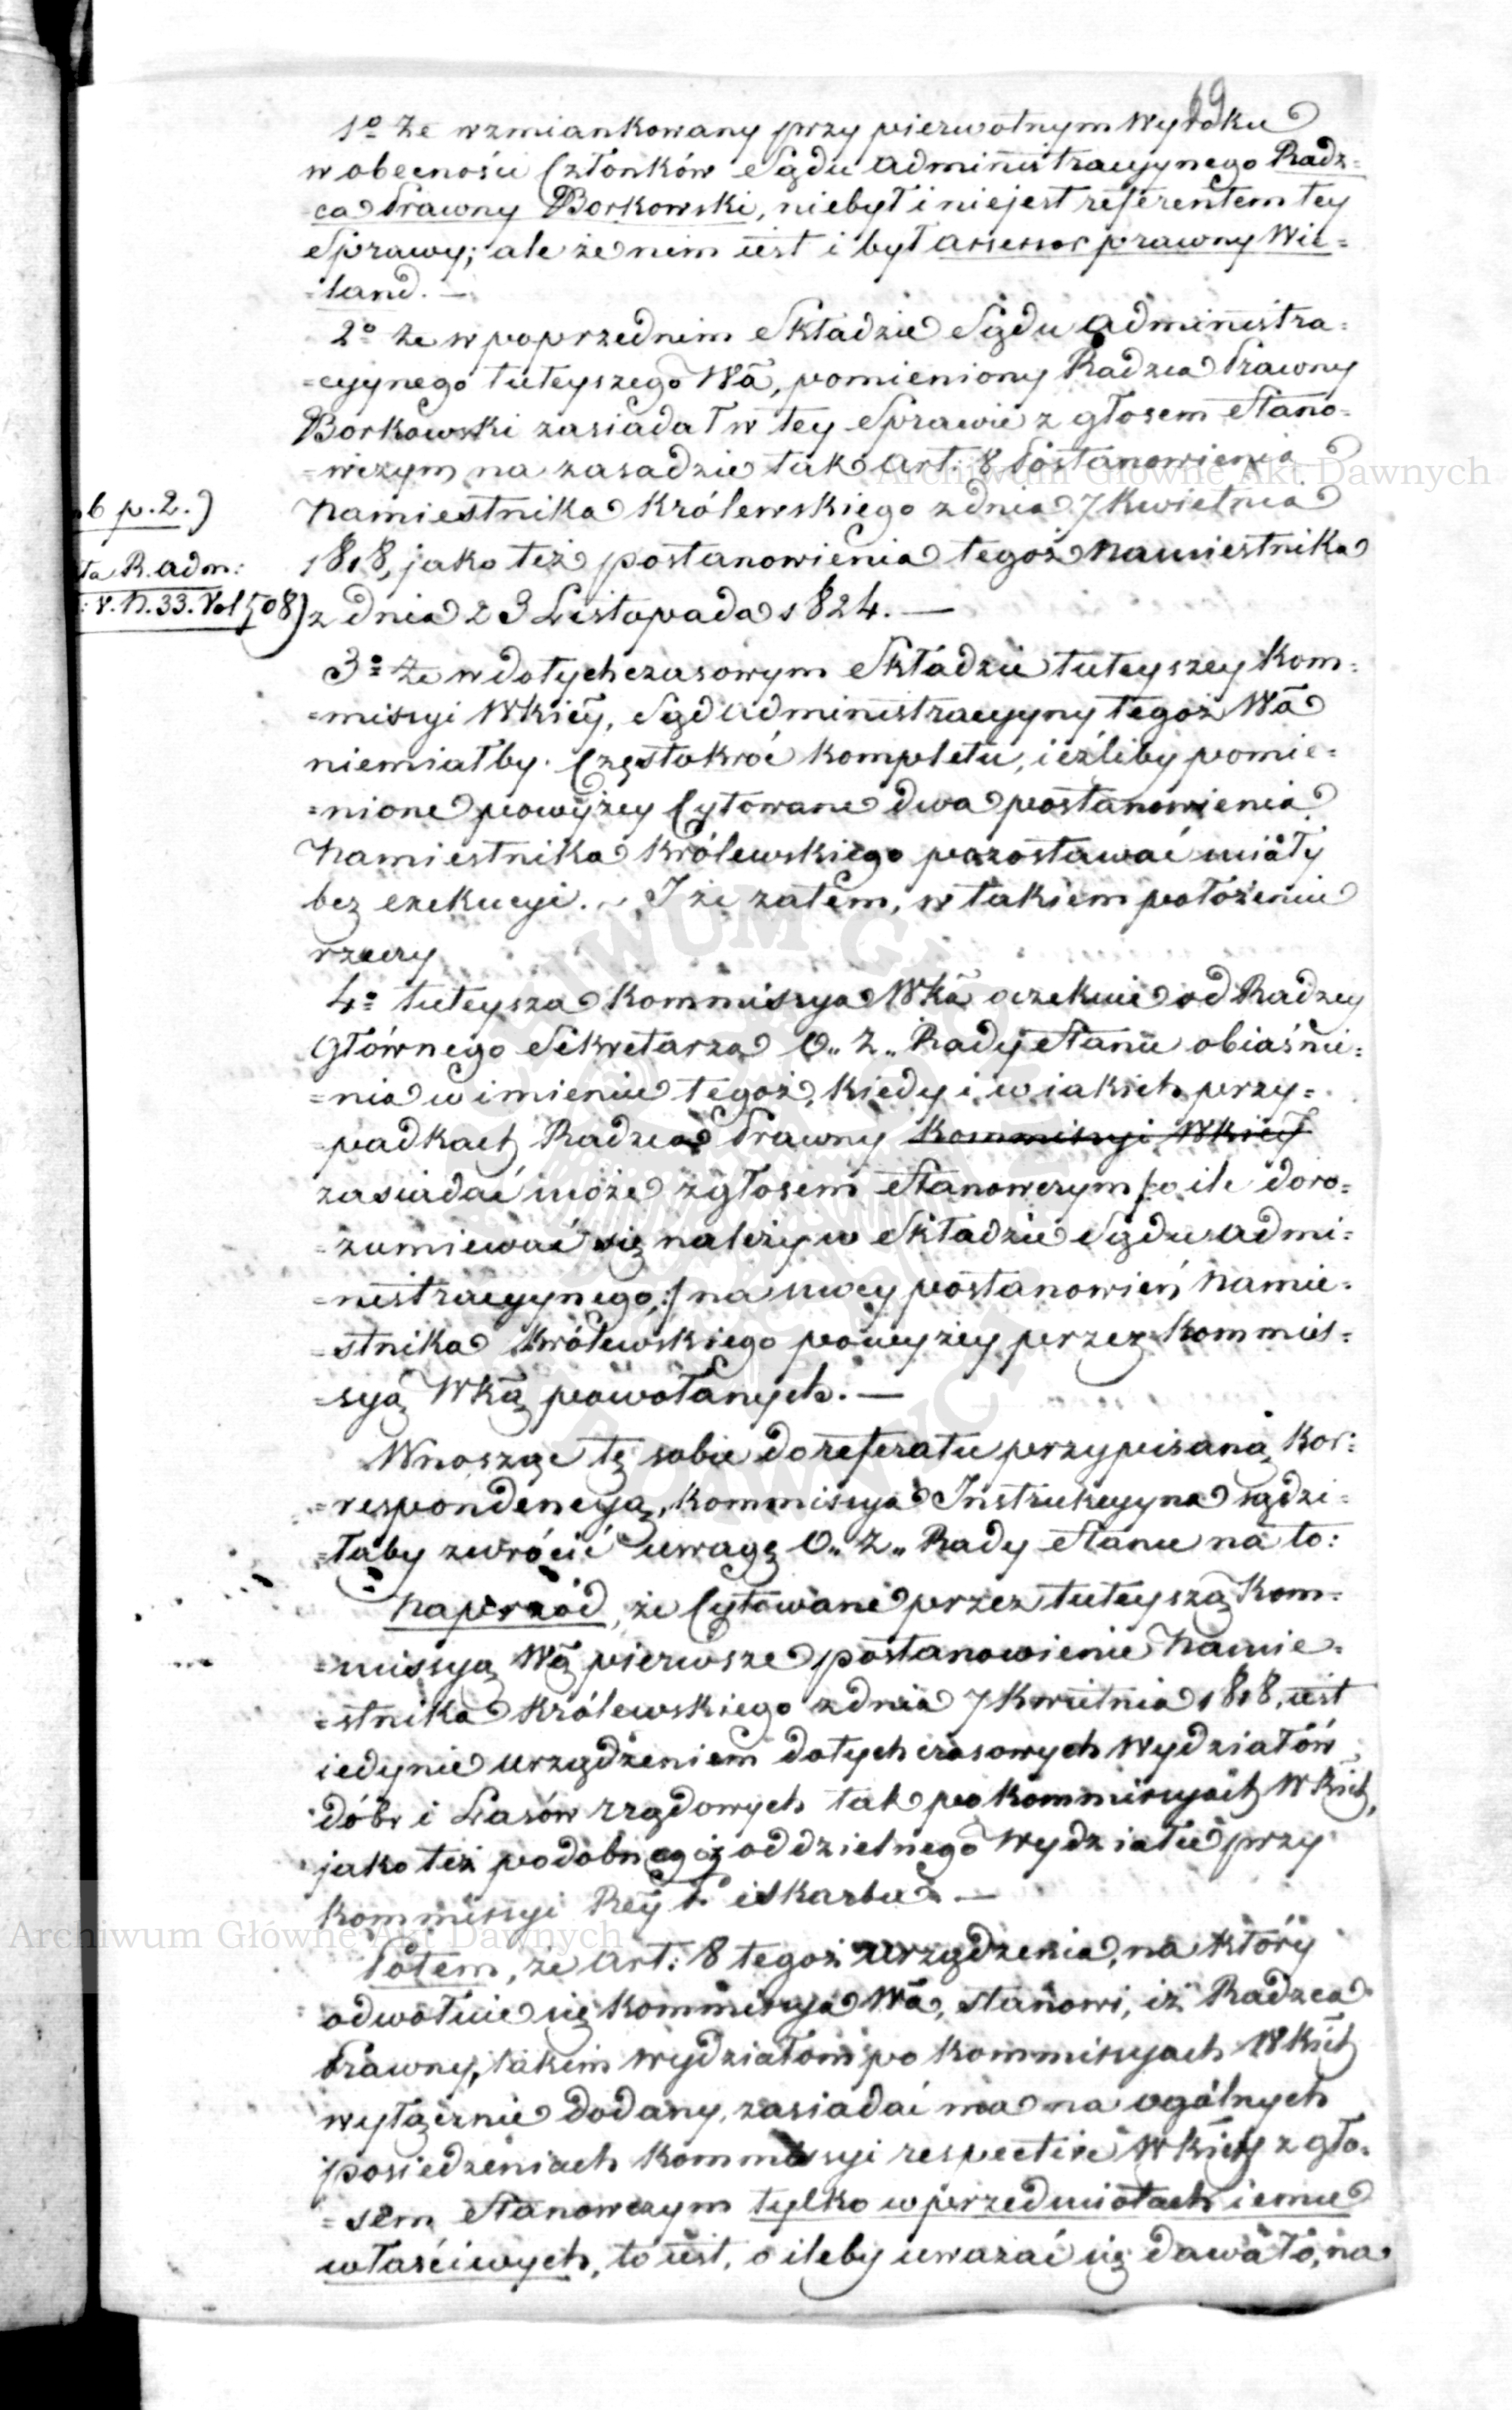 69
1o Że wzmiankowany przy pierwotnym Wyroku
w obecności Członków Sądu Administracyjnego Radz=
ca Prawny Borkowski, niebył i niejest referentem tey
Sprawy; ale że nim iest i był assessor prawny Wie=
=land. —
2o Że w poprzednim Składzie Sądu Administra=
=cyynego tuteyszego Wa, pomieniony Radzca Prawny
Borkowski zasiadał w tey Sprawie z głosem Stano=
=wczym na zasadzie tak art: 8 Postanowienia
Namiestnika Królewskiego z dnia 7 Kwietnia
1818, jako też postanowienia tegoż Namiestnika
z dnia 23 Listopada 1824. —
b p. 2.)
ta R. adm:
: V. N. 33. Vol 508)
3o Że w dotychczasowym Składzie tuteyszey Kom=
=missyi Wkiey, Sąd administracyyny tegoż Wa
niemiałby Częstokroć kompletu, ieźliby pomie=
=nione powyżey Cytowane dwa postanowienia
Namiestnika Królewskiego pozostawać miały
bez exekucyi. — I że zatem, w takiem położeniu
rzeczy
4o tuteysza Kommissya Wka oczekuie od Radzcy
Głównego Sekretarza O„ Z„ Rady Stanu obiaśnie=
=nia w imieniu tegoż, kiedy i w iakich przy=
padkach Radzca Prawny Kommissyi Wkiey
zasiadać może z głosem Stanowczym /:o ile doro=
=zumiewać się należy w Składzie Sądu admi=
=nistracyynego:/ na mocy postanowień Namie=
=stnika Królewskiego powyżey przez Kommis=
=syą Wką powołanych. —
Wnosząc tę sobie do referatu przypisaną Kor=
=respondencyą, Kommissya Instrukcyyna sądzi=
=łaby zwrócić uwagę O„ Z„ Rady Stanu na to:
Naprzód, że Cytowane przez tuteyszą Kom=
=missyą Wą pierwsze postanowienie Namie=
=stnika Królewskiego z dnia 7 Kwietnia 1818, iest
iedynie urządzeniem dotychczasowych Wydziałów
dóbr i Lasów rządowych tak po Kommissyach Wkich,
jako też podobnegoż oddzielnego Wydziału przy
Kommissyi Rey P. i Skarbu. —
Potem, że art: 8 tegoż urządzenia, na który
odwołuie się Kommissya Wa, stanowi, iż Radzca
Prawny, takim Wydziałom po Kommissyach Wkich
wyłącznie dodany, zasiadać ma na ogólnych
posiedzeniach Kommissyi respective Wkiey z gło=
=sem Stanowczym tylko w przedmiotach iemu
właściwych, to iest, o ileby uważać się dawało, na
Archiwum Główne Akt Dawnych
Archiwum Główne Akt Dawnych